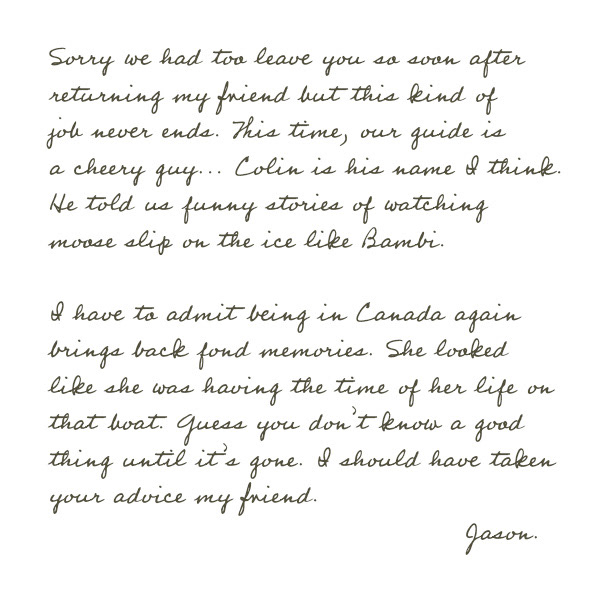 Sorry we had too leave you so soon after
returning my friend but this kind of
job never ends. This time, our guide is
a cheery guy... Colin is his name I think.
He told us funny stories of watching
moose slip on the ice like Bambi.
I have to admit being in Canada again
brings back fond memories. She looked
like she was having the time of her life on
that boat. Guess you don't know a good
thing until it's gone. I should have taken
your advice my friend.
Jason.